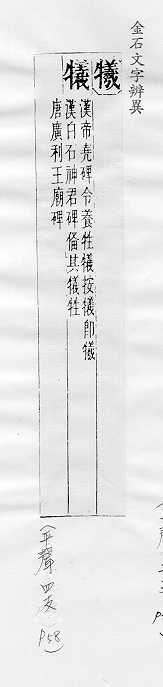 金石文字辨異
犧
犠
漢帝堯碑令養牲犠按犠即犧
漢白石神君碑備其犠牲
唐廣利王廟碑
(平聲四支) P58